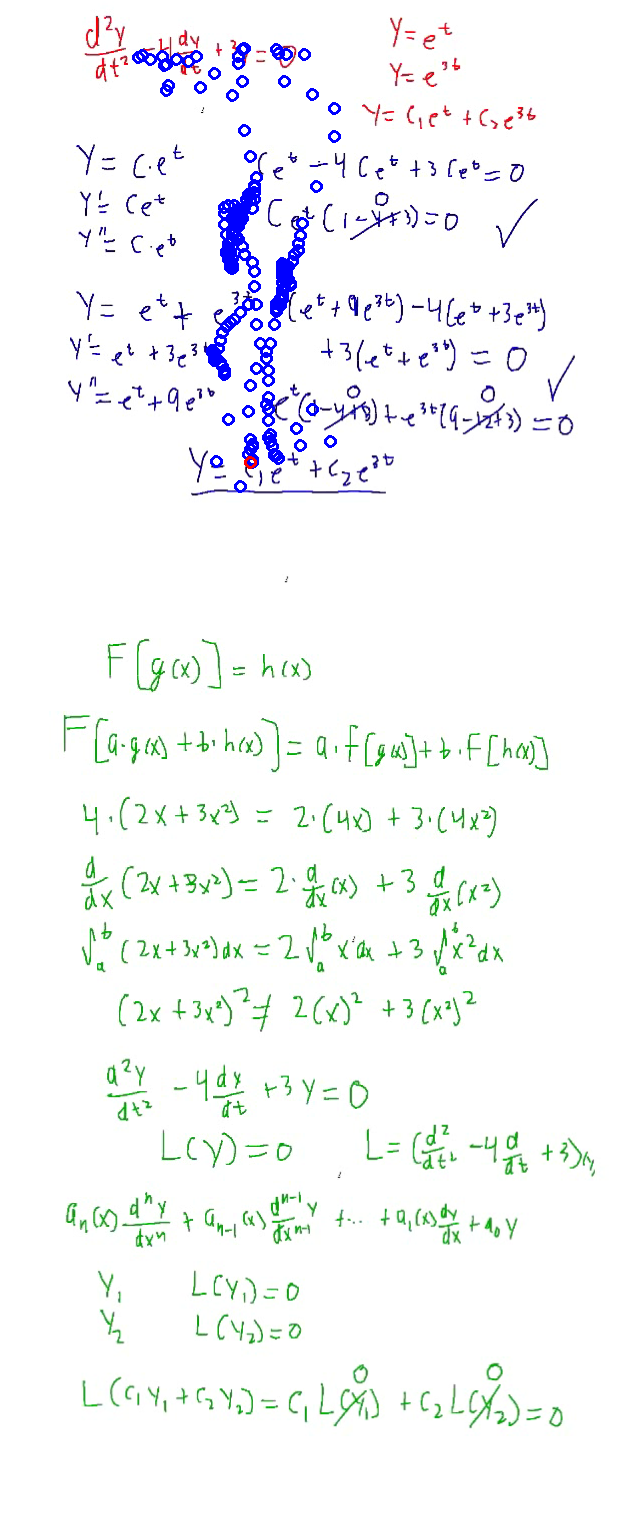 d²y/dt² - 4 dy/dt + 3y = 0
y = e^t
y = e^3t
y = c₁e^t + c₂e^3t
y = c·e^t
Ce^t - 4Ce^t + 3Ce^t = 0
y' = Ce^t
Ce^t(1-4+3) = 0 ✓
0
y'' = C·e^t
y = e^t + e^3t
(e^t + 9e^3t) - 4(e^t + 3e^3t)
y' = e^t + 3e^3t
+3(e^t + e^3t) = 0 ✓
y'' = e^t + 9e^3t
0 0
e^t(1-4+3) + e^3t(9-12+3) = 0
y = c₁e^t + c₂e^3t
F[g(x)] = h(x)
F[a·g(x) + b·h(x)] = a·f[g(x)] + b·F[h(x)]
4·(2x + 3x²) = 2·(4x) + 3·(4x²)
d/dx (2x + 3x²) = 2·d/dx (x) + 3 d/dx (x²)
∫ₐᵇ (2x + 3x²)dx = 2∫ₐᵇ x dx + 3∫ₐᵇ x² dx
(2x + 3x²)² ≠ 2(x)² + 3(x²)²
d²y/dt² - 4 dy/dt + 3y = 0
L(y) = 0 L = (d²/dt² - 4 d/dt + 3)
aₙ(x) dⁿy/dxⁿ + aₙ₋₁(x) dⁿ⁻¹y/dxⁿ⁻¹ + ... + a₁(x) dy/dx + a₀y
y₁ L(y₁) = 0
y₂ L(y₂) = 0
0 0
L(c₁y₁ + c₂y₂) = c₁L(y₁) + c₂L(y₂) = 0